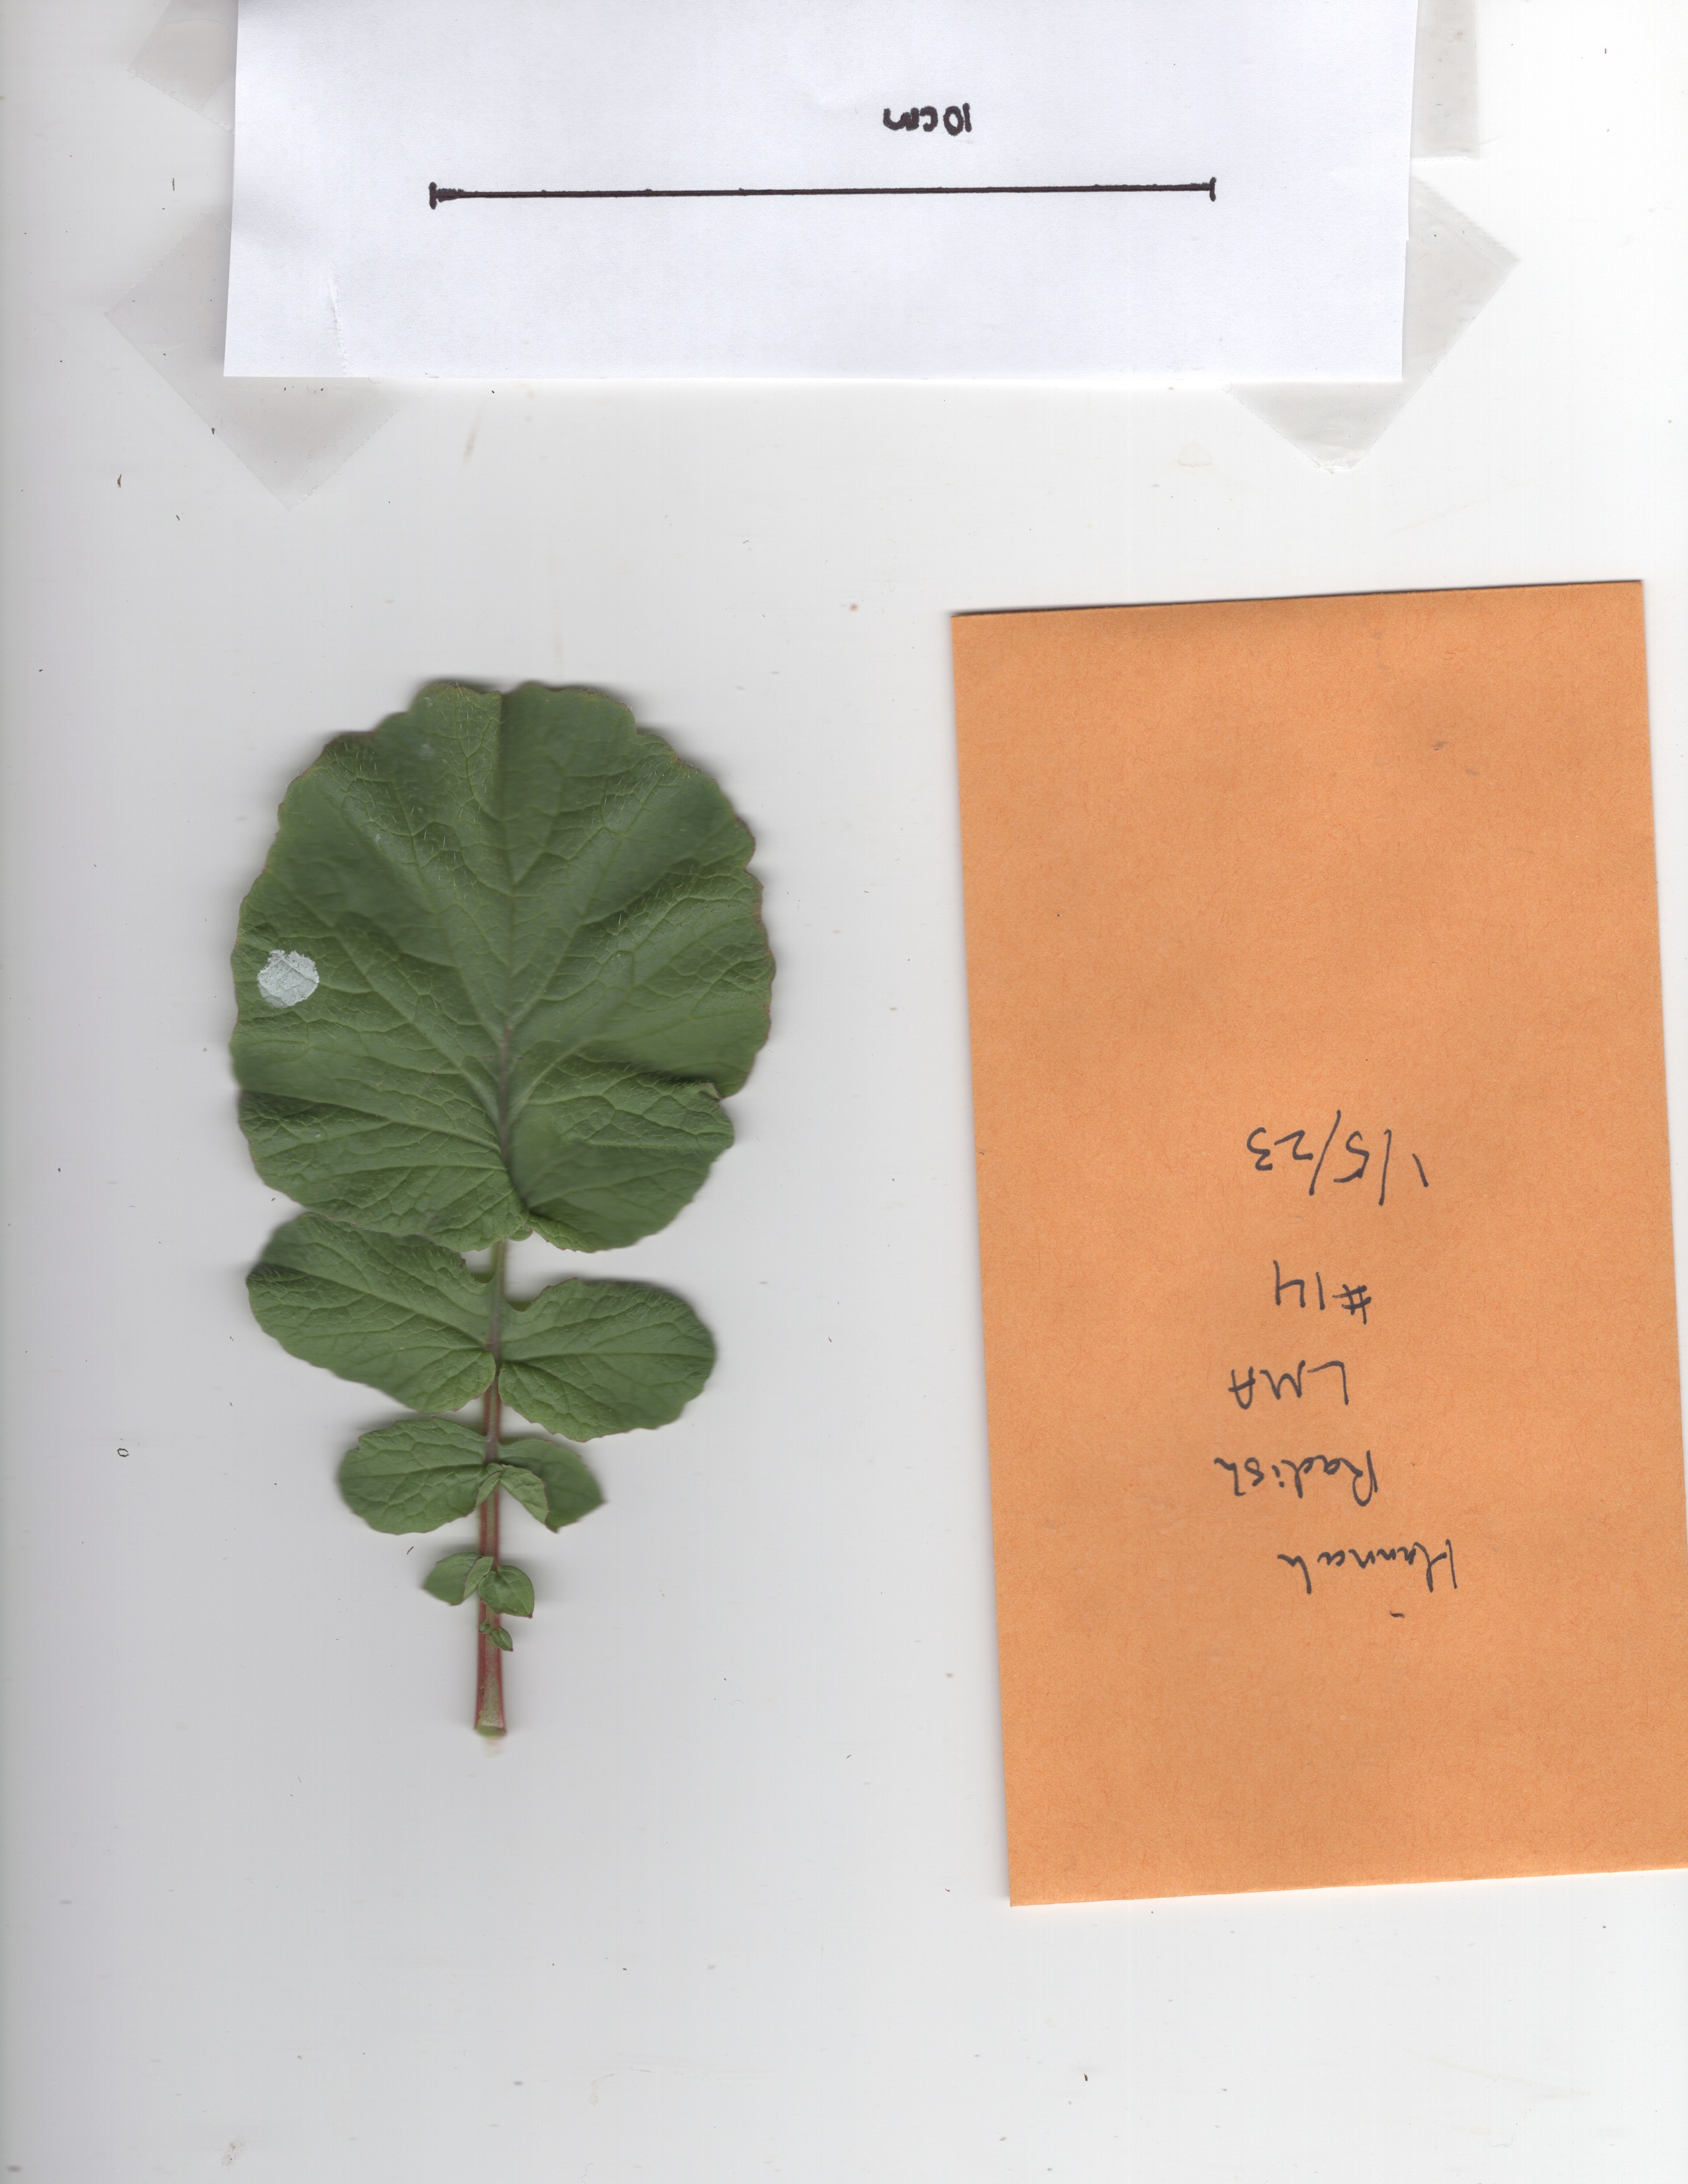 10cm
Hannah
Radish
LMA
#14
1/5/23